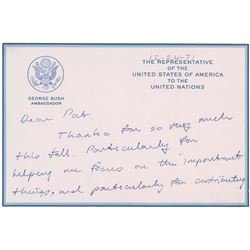 12-24-71
THE REPRESENTATIVE
OF THE
UNITED STATES OF AMERICA
TO THE
UNITED NATIONS
GEORGE BUSH
AMBASSADOR
Dear Pat,
Thanks for so very much
this fall. Particularly for
helping me focus on the important
things, and particularly for contributing